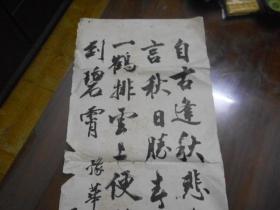 自古逢秋悲
言秋日勝春
一鶴排雲上便
到碧霄